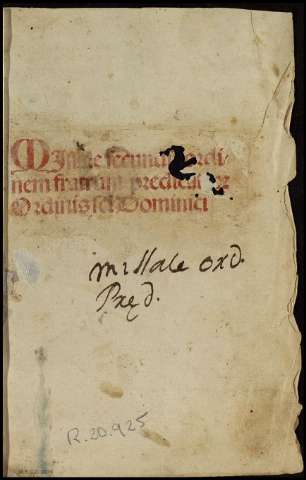 Missale secundū ordi-
nem fratrum predicatoꝝ
Ordinis sc̄i Dominici
missale ord.
Pręd.
R. 20.925